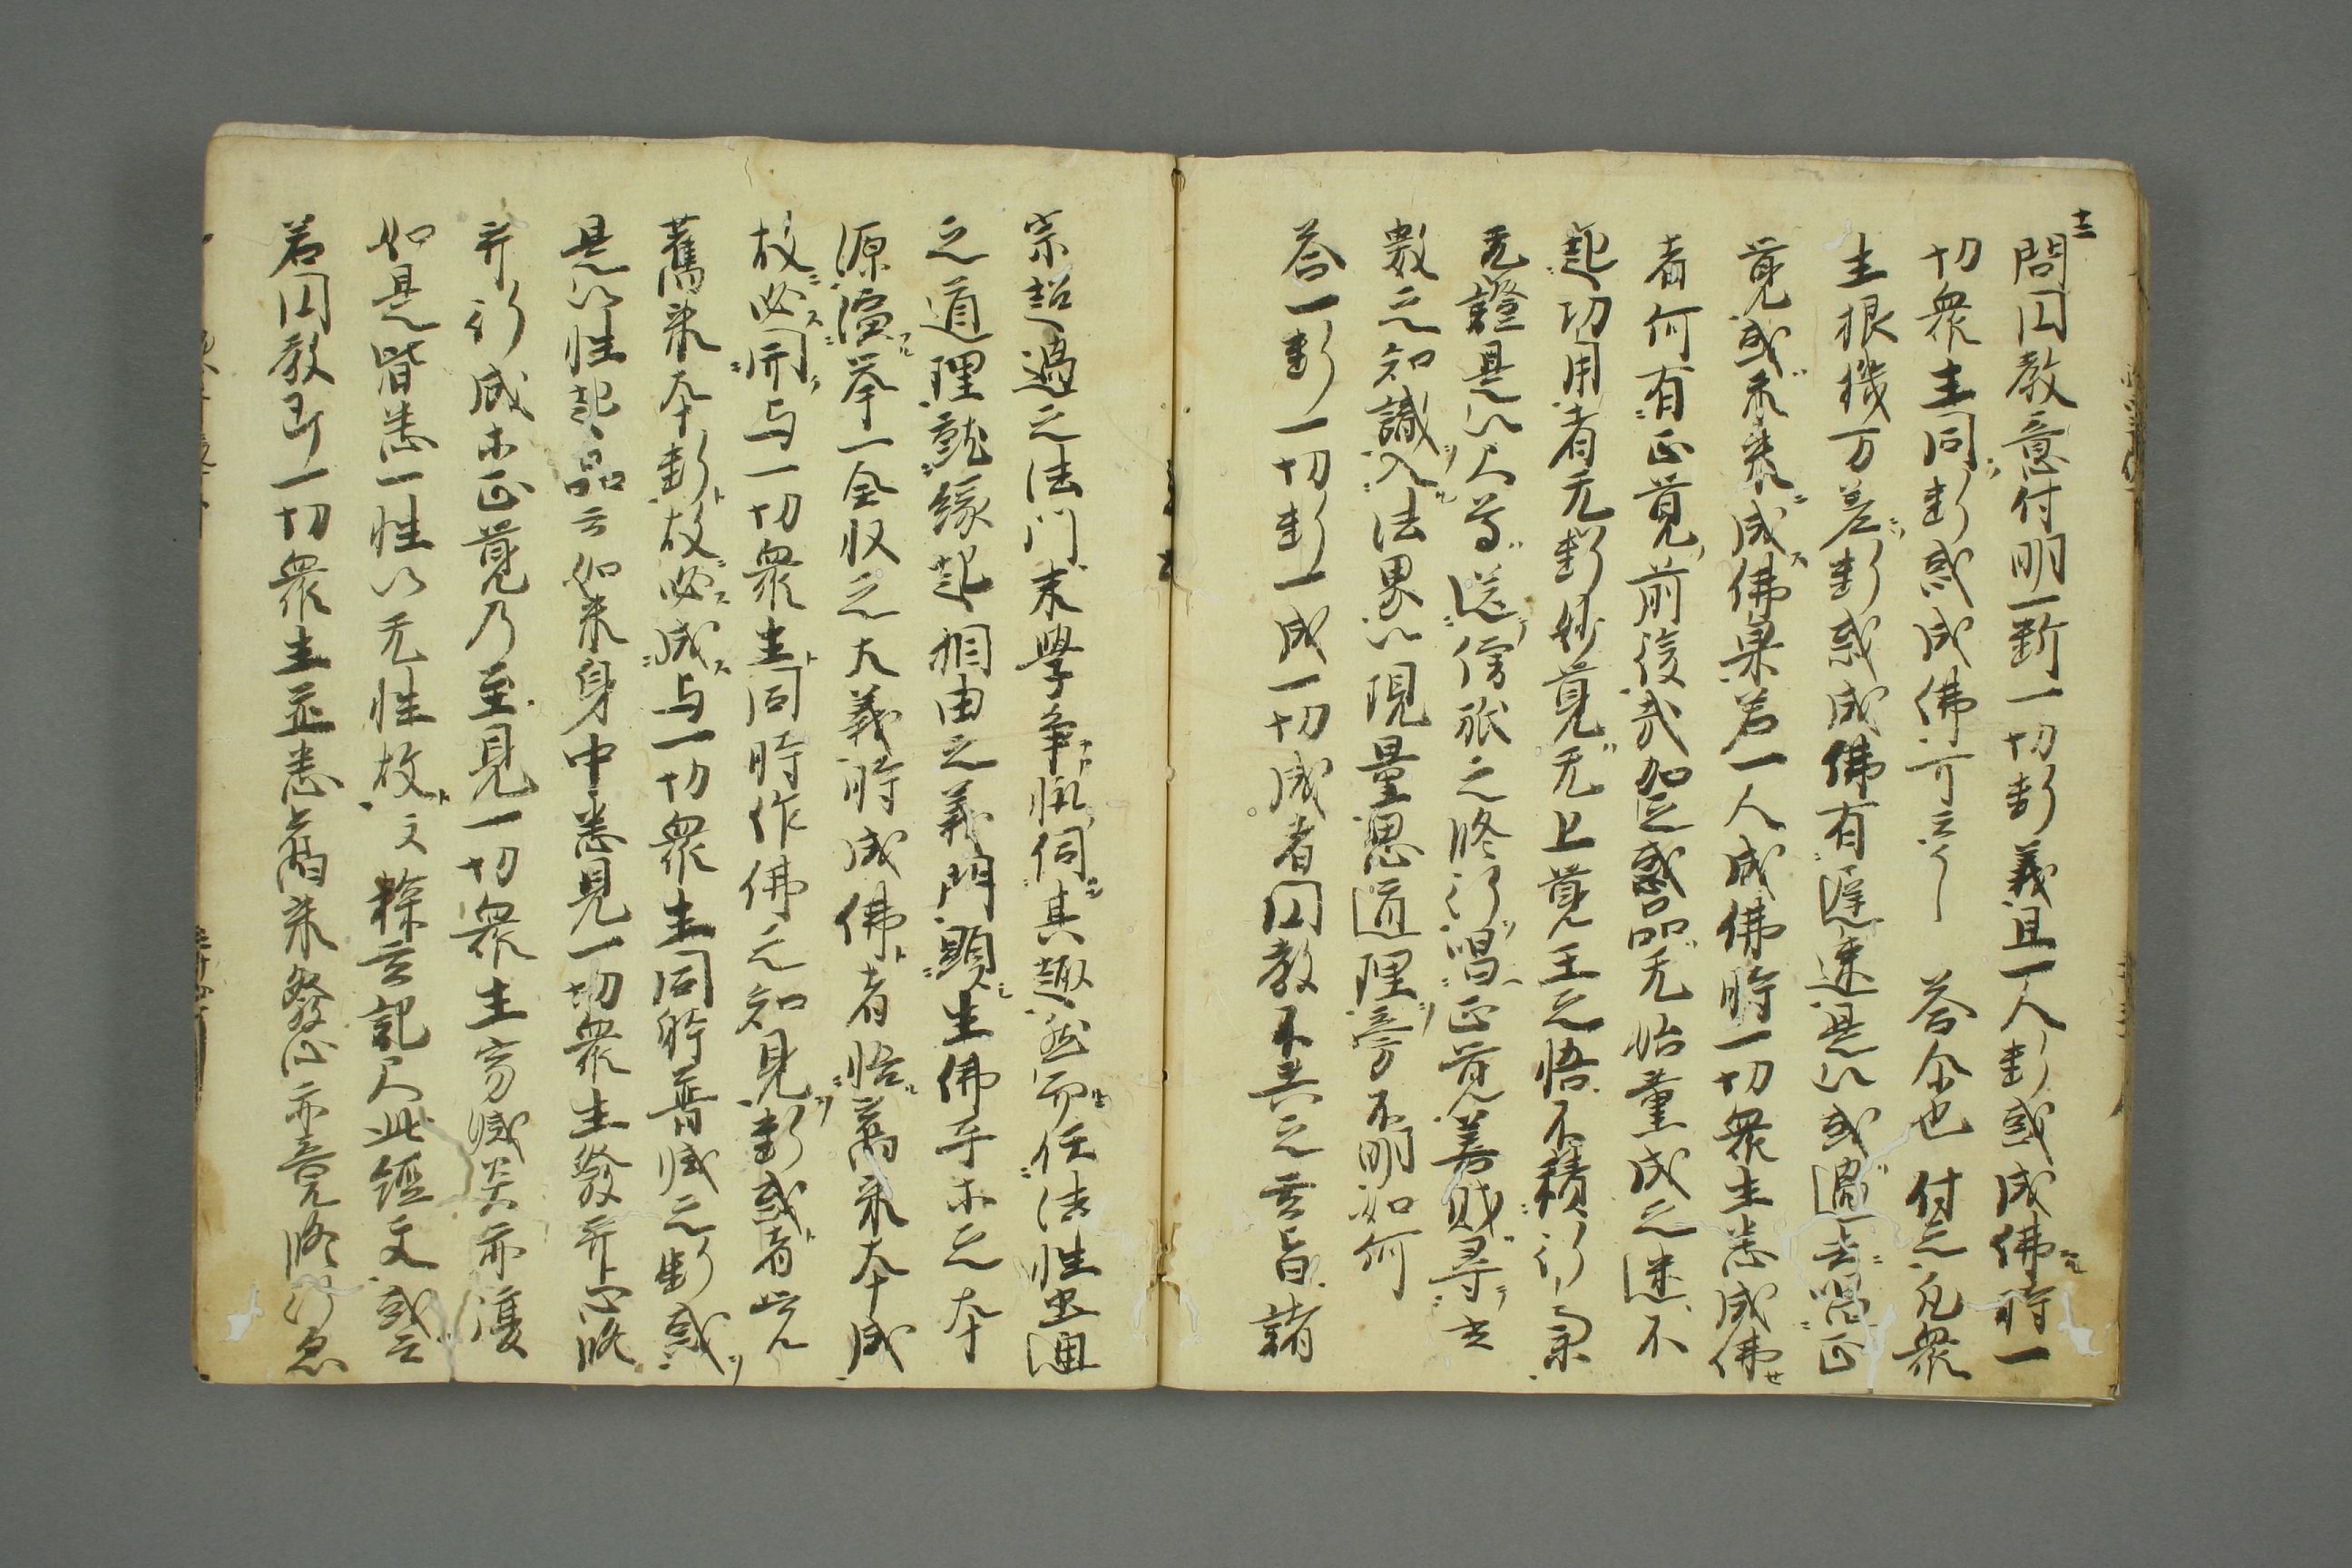 十二
問円教意付明一断一切断義且一人断惑成佛時一
切衆生同断惑成佛可云乎 答尓也 付之凡衆
生根機万差断惑成佛有遅速是以或過去唱正
覚或未来成佛果若一人成佛時一切衆生悉成佛
者何有正覚前後哉加之惑品无始薫成之迷不
起功用者无断妙覚无上覚王之悟不積行業
无證是以人尊送僧祇之修行唱正覚善財尋
数之知識入法界以現量思道理旁不明如何
答一断一切断一成一切成者円教不共之玄旨諸
宗超過之法門末學争輙伺其趣然而任法性融通
之道理就縁起相由之義門顕生佛平等之本
源演挙一全収之大義時成佛者悟舊来本成
故必開与一切衆生同時作佛之知見断惑者覚
舊来本断故必成与一切衆生同時普成之断惑
是以性起品云如来身中悉見一切衆生發菩提心修
菩薩行成等正覚乃至見一切衆生寂滅涅槃亦復
如是皆悉一性以无性故文 釋玄記尺此經文或云
若円教即一切衆生並悉舊来發心亦竟修行